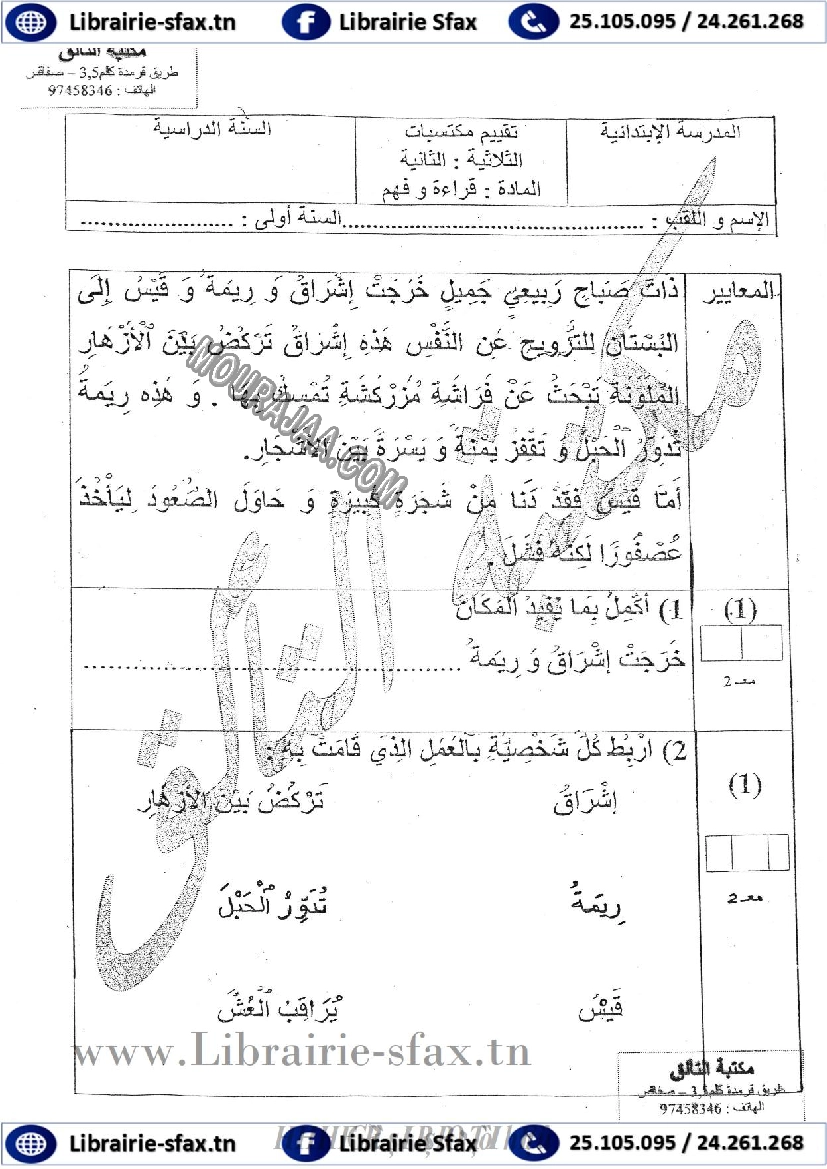 Librairie-sfax.tn Librairie Sfax 25.105.095 / 24.261.268
مكتبة التألق
طريق قرمدة كلم3,5 – صفاقس
الهاتف : 97458346
المدرسة الإبتدائية
تقييم مكتسبات
الثلاثية : الثانية
المادة : قراءة و فهم
السنة الدراسية
الإسم و اللقب : ............................................السنة أولى : ......................
المعايير
ذَاتَ صَبَاحٍ رَبِيعِيٍّ جَمِيلٍ خَرَجَتْ إِشْرَاقُ وَ رِيمَةُ وَ قَيْسُ إِلَى
البُسْتَانِ لِلتَّرْوِيحِ عَنِ النَّفْسِ هَذِهِ إِشْرَاقُ تَرْكُضُ بَيْنَ الْأَزْهَارِ
المُلَوَّنَةِ تَبْحَثُ عَنْ فَرَاشَةٍ مُزَرْكَشَةٍ تُمْسِكُ بِهَا . وَ هَذِهِ رِيمَةُ
تُدَوِّرُ الْحَبْلَ وَ تَقْفِزُ يَمْنَةً وَ يَسْرَةً بَيْنَ الْأَشْجَارِ.
أَمَّا قَيْسُ فَقَدْ دَنَا مِنْ شَجَرَةٍ كَبِيرَةٍ وَ حَاوَلَ الصُّعُودَ لِيَأْخُذَ
عُصْفُورًا لَكِنَّهُ فَشَلَ .
MOURAJAA.COM
مكتبة التألق
1) أُكْمِلُ بِمَا يُفِيدُ الْمَكَانَ
(1)
خَرَجَتْ إِشْرَاقُ وَ رِيمَةُ ......................................................
معـ 2
2) ارْبِطْ كُلَّ شَخْصِيَّةٍ بِالْعَمَلِ الَّذِي قَامَتْ بِهِ :
(1)
إِشْرَاقُ تَرْكُضُ بَيْنَ الْأَزْهَارِ
معـ 2
رِيمَةُ تُدَوِّرُ الْحَبْلَ
قَيْسُ يُرَاقِبُ الْعُشَّ
www.Librairie-sfax.tn
مكتبة التألق
طريق قرمدة كلم3,5 – صفاقس
الهاتف : 97458346
Librairie-sfax.tn Librairie Sfax 25.105.095 / 24.261.268